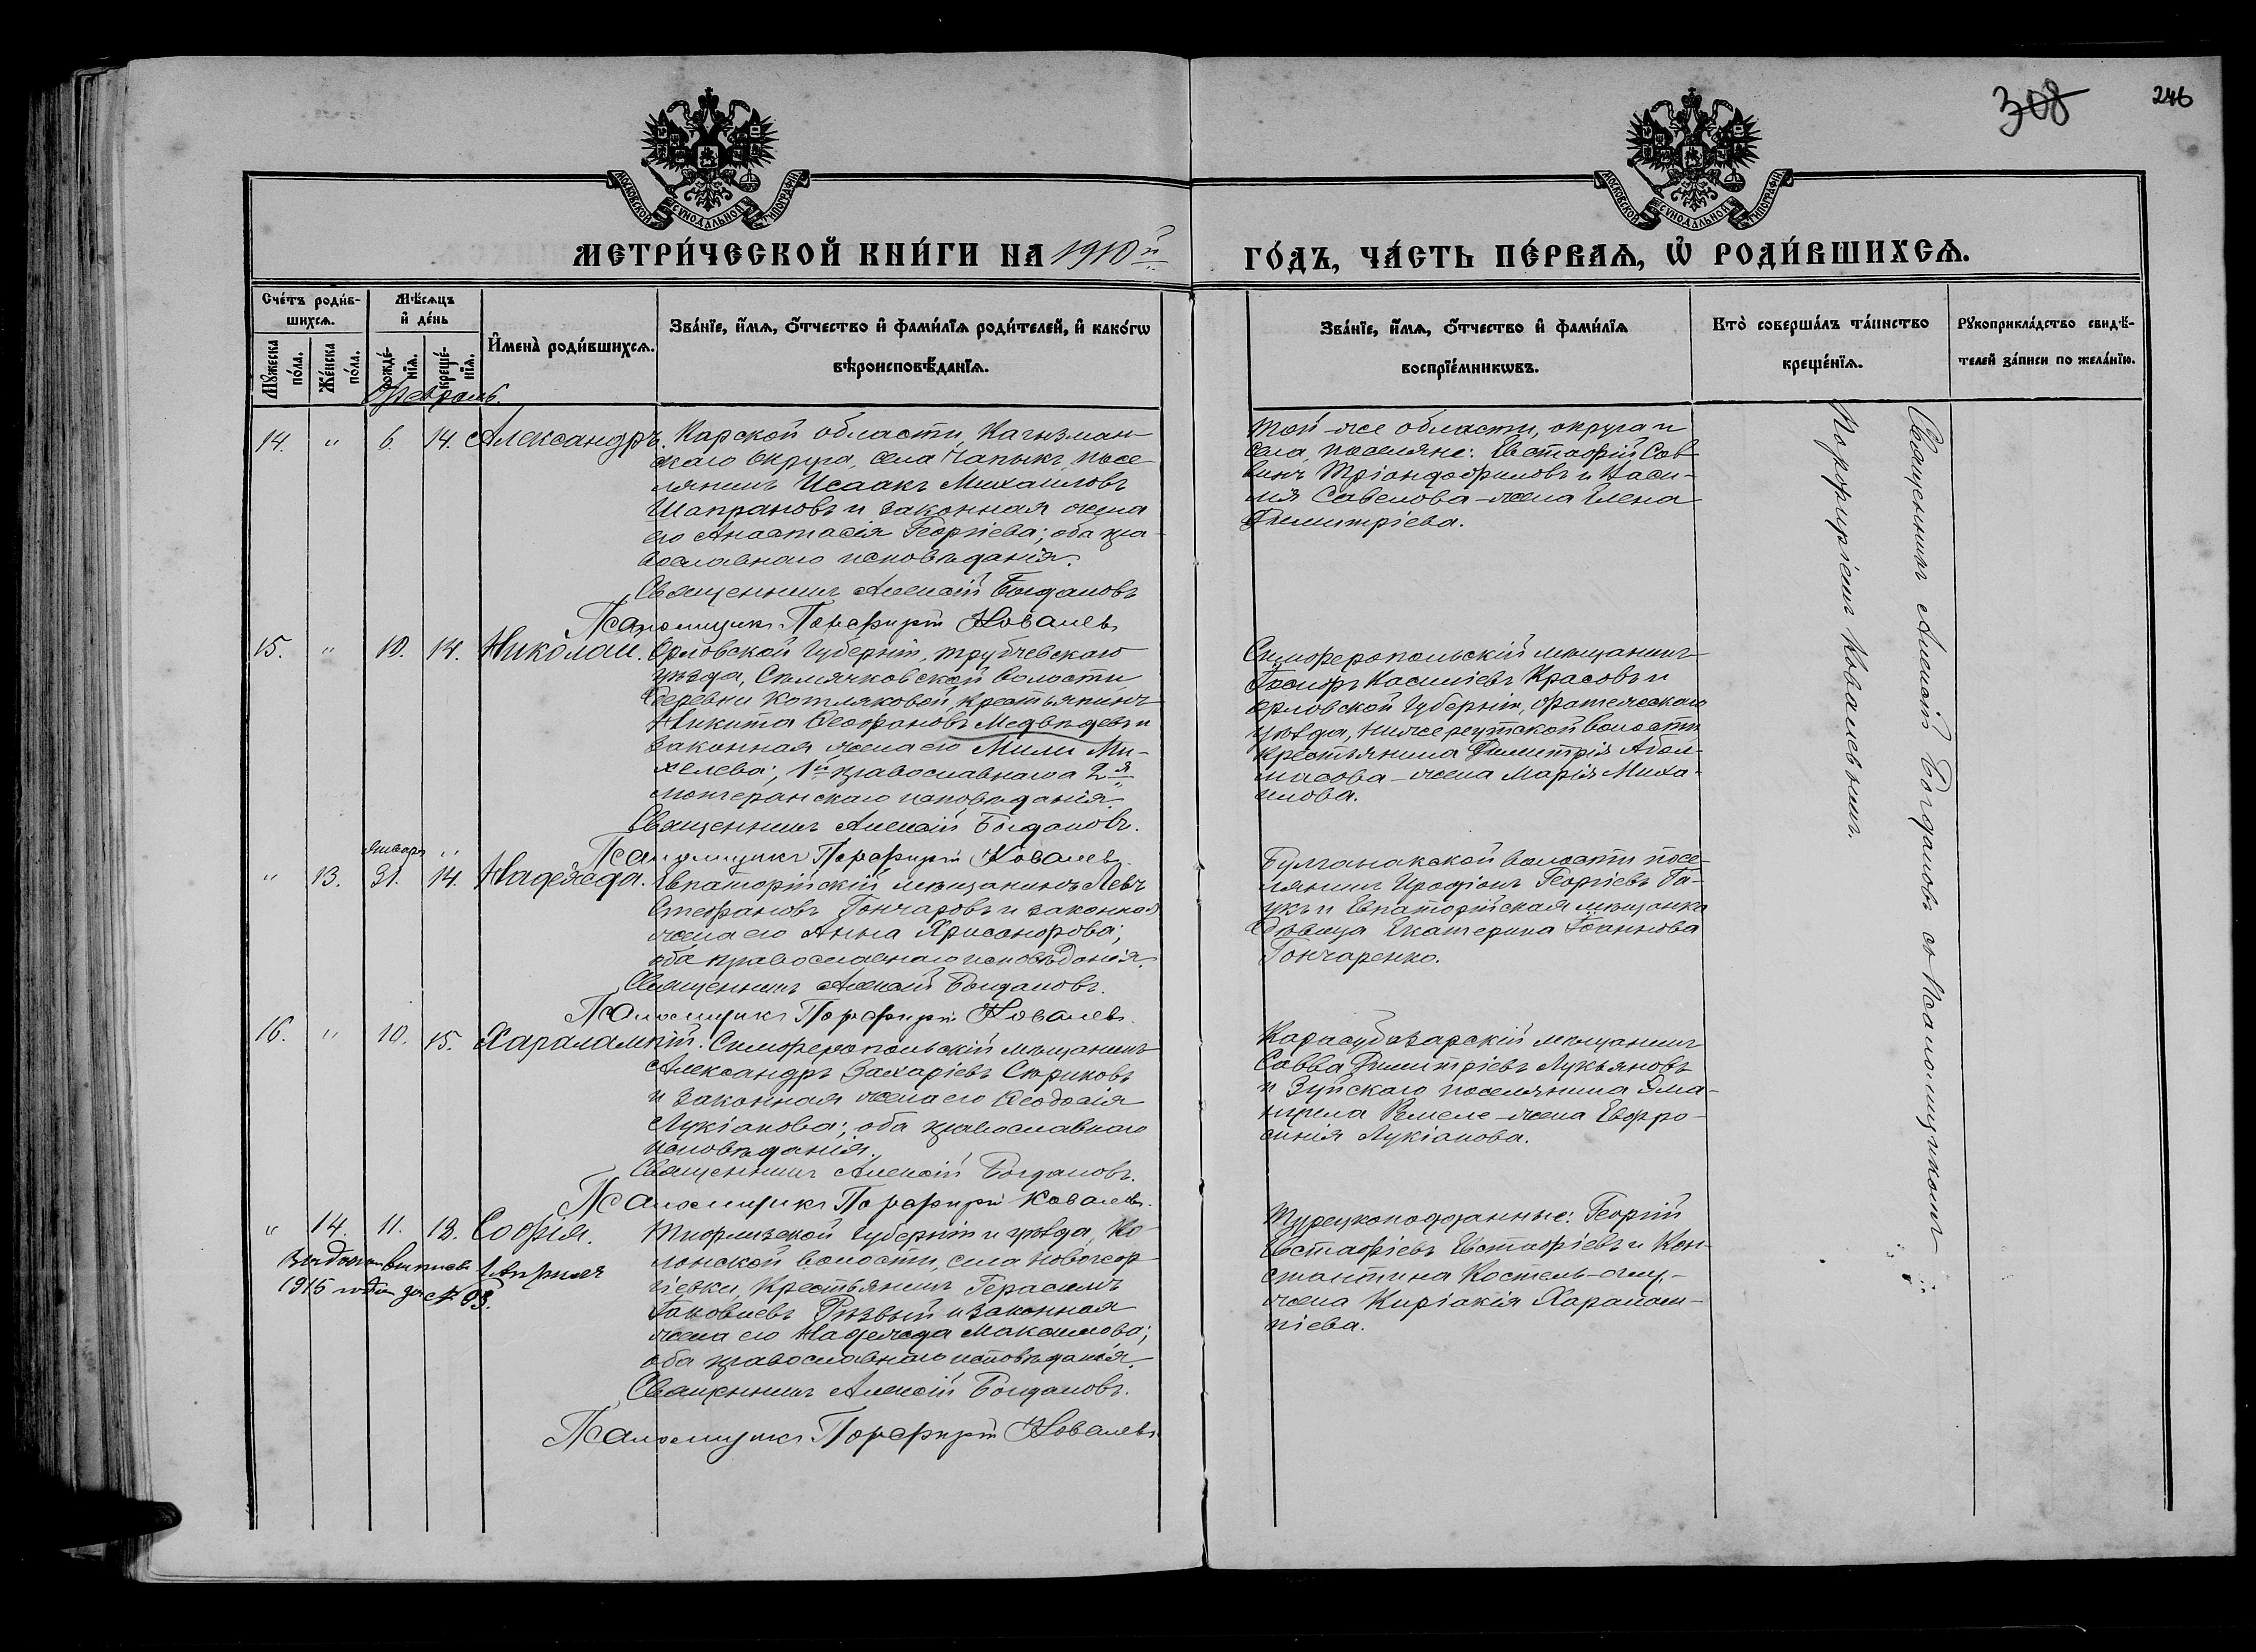 308
246
МОСКОВСКОЙ СѴНОДАЛЬНОЙ ТИПОГРАФІИ
МОСКОВСКОЙ СѴНОДАЛЬНОЙ ТИПОГРАФІИ
МЕТРИ́ЧЕСКОЙ КНИ́ГИ НА 1910й
ГО́ДЪ, ЧА́СТЬ ПЕ́РВАѦ, Ѡ҆ РОДИ́ВШИХСѦ.
Сче́тъ роди́в-
шихсѧ.
Мꙋ́жеска по́ла.
Же́нска по́ла.
Мѣ́сѧцъ
и҆ де́нь
рожде́-
нїѧ.
креще́-
нїѧ.
И҆мена̀ роди́вшихсѧ.
Зва́нїе, и҆́мѧ, ѻ҆́тчество и҆ фами́лїѧ роди́телей, и҆ како́гѡ
вѣроисповѣ́данїѧ.
Зва́нїе, и҆́мѧ, ѻ҆́тчество и҆ фами́лїѧ
воспрїе́мникѡвъ.
Кто̀ соверша́лъ та́инство
креще́нїѧ.
Рꙋкоприкла́дство свидѣ́-
телей за́писи по жела́нїю.
Февраль.
14. " 6. 14. Александръ. Карской области, Кагызман-
скаго округа, села Чапыкъ, посе-
лянинъ Исаакъ Михаиловъ
Шапрановъ и законная жена
его Анастасія Георгіева; оба пра-
вославнаго исповѣданія.
Священникъ Алексій Богдановъ
Псаломщикъ Порфирій Ковалевъ
Той-же области, округа и
села, поселяне: Евстафій Сав-
винъ Тріандафиловъ и Васи-
лія Савелова-жена Елена
Димитріева.
15. " 10. 14. Николай. Орловской Губерніи, Трубчевскаго
уѣзда, Селячковской волости
деревни Котляковой, Крестьянинъ
Никита Феофановъ Медвѣдевъ и
законная жена его Мили Ми-
хелева; 1й православнаго а 2я
лютеранскаго исповѣданія.
Священникъ Алексій Богдановъ.
Псаломщикъ Порфирій Ковалевъ.
Симферопольскій мѣщанинъ
Іосифъ Касиніевъ Красовъ и
Орловской Губерніи, Фатежскаго
уѣзда, Нижереутской волости
Крестьянина Димитрія Абол-
масова-жена Марія Миха-
илова.
января "
" 13. 31. 14. Надежда. Евпаторійскій мѣщанинъ Левъ
Стефановъ Гончаровъ и законная
жена его Анна Хрисанфова;
оба православнаго исповѣданія.
Священникъ Алексій Богдановъ.
Псаломщикъ Порфирій Ковалевъ.
Булганакской волости посе-
лянинъ Иродіонъ Георгіевъ Га-
укъ и Евпаторійская мѣщанка
дѣвица Екатерина Іоаннова
Гончаренко.
16. " 10. 15. Харалампій. Симферопольскій мѣщанинъ
Александръ Захаріевъ Сюриковъ
и законная жена его Феодосія
Лукіанова; оба православнаго
исповѣданія.
Священникъ Алексій Богдановъ.
Псаломщикъ Порфирій Ковалевъ.
Карасубазарскій мѣщанинъ
Савва Димитріевъ Лукьяновъ
и Зуйскаго поселянина Эма-
нуила Кемеле-жена Евфро-
синія Лукіанова.
" 14. 11. 18. Софія. Тифлисской Губерніи и уѣзда, Ко-
лонской волости, села Новогеор-
гіевки, Крестьянинъ Герасимъ
Іаковлевъ Рѣзвый и законная
жена его Надежда Максимова;
оба православнаго исповѣданія.
Священникъ Алексій Богдановъ.
Псаломщикъ Порфирій Ковалевъ.
выпись 1 Апрѣля
1915 года за № 93.
Турецкоподданные: Георгій
Евстафіевъ Евстафіевъ и Кон-
стантина Костель-оглу-
жена Киріакія Харалам-
піева.
Священникъ Алексій Богдановъ съ Псаломщикомъ
Порфиріемъ Ковалевымъ.